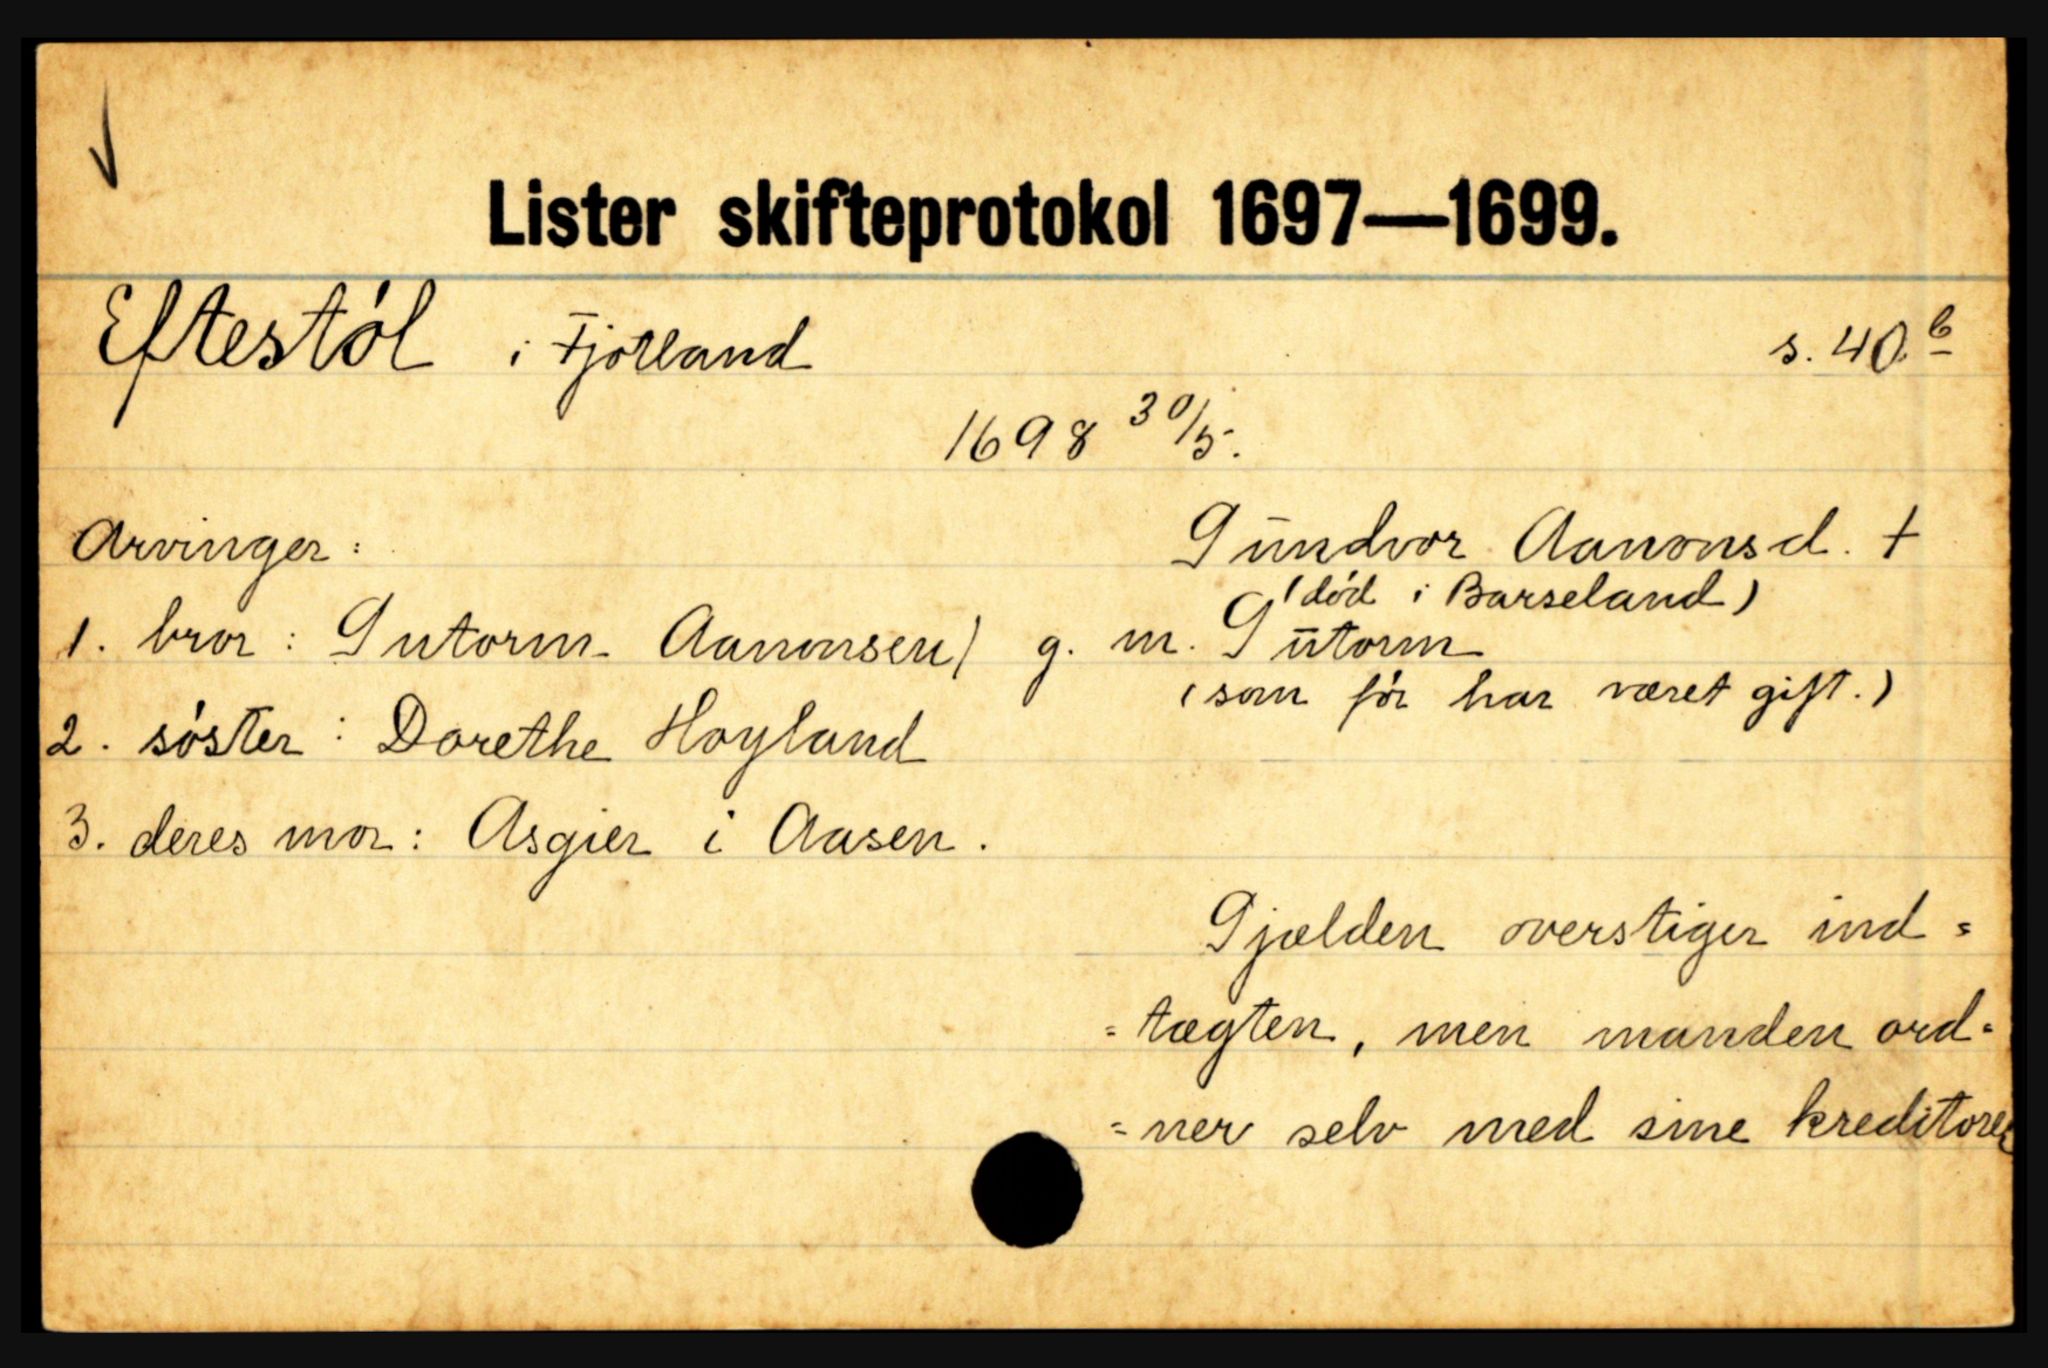 Lister skifteprotokol 1697—1699.
Eftestöl i Fjotland s. 40.b
1698 30/5.
Arvinger: Gundvor Aanonsd. +
(död i Barseland)
1. bror: Gutorm Aanonsen) g. m. Gutorm
(som för har været gift.)
2. söster: Dorethe Høyland
3. deres mor: Asgier i Aasen.
Gjælden overstiger ind=
=tægten, men manden ord=
=ner selv med sine kreditorer